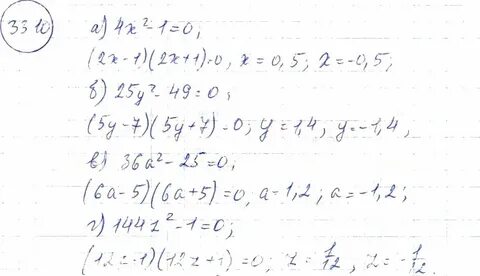 33.10
а) 4x²-1=0;
(2x-1)(2x+1)=0, x=0,5; x=-0,5;
б) 25y²-49=0;
(5y-7)(5y+7)=0; y=1,4, y=-1,4,
в) 36a²-25=0;
(6a-5)(6a+5)=0, a=1,2; a=-1,2;
г) 144z²-1=0;
(12z-1)(12z+1)=0; z=1/12, z=-1/12